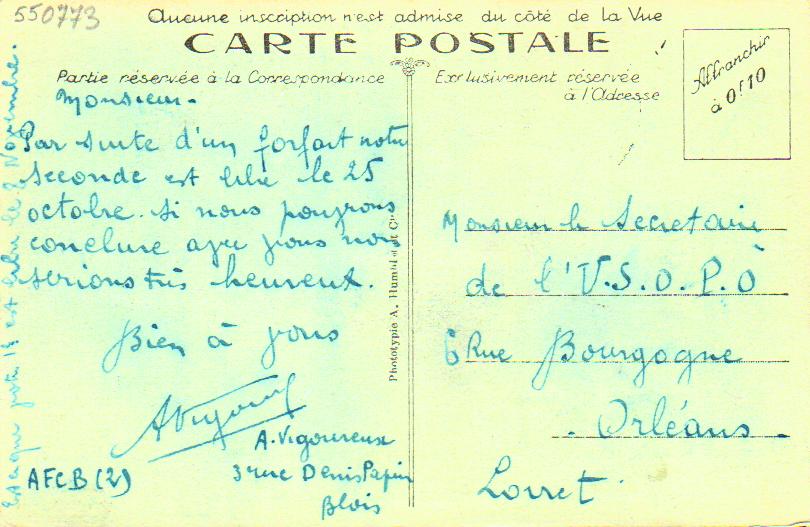 550773
Aucune inscription n'est admise du côté de la Vue
CARTE POSTALE
Partie réservée à la Correspondance
Exclusivement réservée
à l'Adresse
Affranchir
à 0f10
Monsieur.
Par suite d'un forfait notre
seconde est libre le 25
octobre. si nous pouvons
conclure avec vous nous
serions très heureux.
Bien à vous
A. Vigoureux
3 rue Denis Papin
Blois
AFCB (2)
est libre le 2 Novembre.
Phototypie A. Humblot et Cie
Monsieur le Secretaire
de l'U.S.O.P.O
6 Rue Bourgogne
Orléans
Loiret